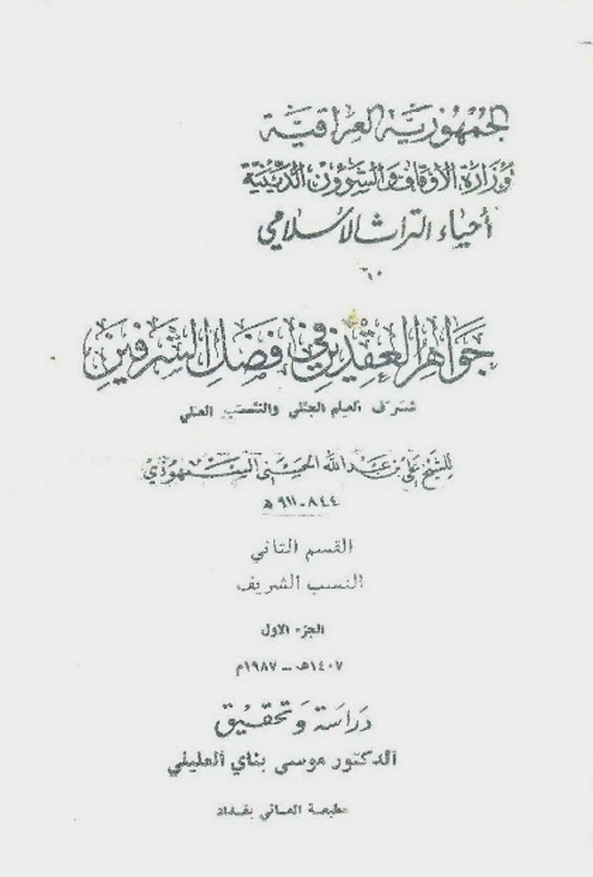 الجمهورية العراقية
وزارة الأوقاف والشؤون الدينية
أحياء التراث الاسلامي
٦٠
جواهر العقدين في فضل الشرفين
شرف العلم الجلي والنسب العلي
للشيخ علي بن عبد الله الحسني السمهودي
٨٤٤ـ٩١١ هـ
القسم الثاني
النسب الشريف
الجزء الاول
١٤٠٧هـ ـ ١٩٨٧م
دراسة وتحقيق
الدكتور موسى بناي العليلي
مطبعة العاني بغداد